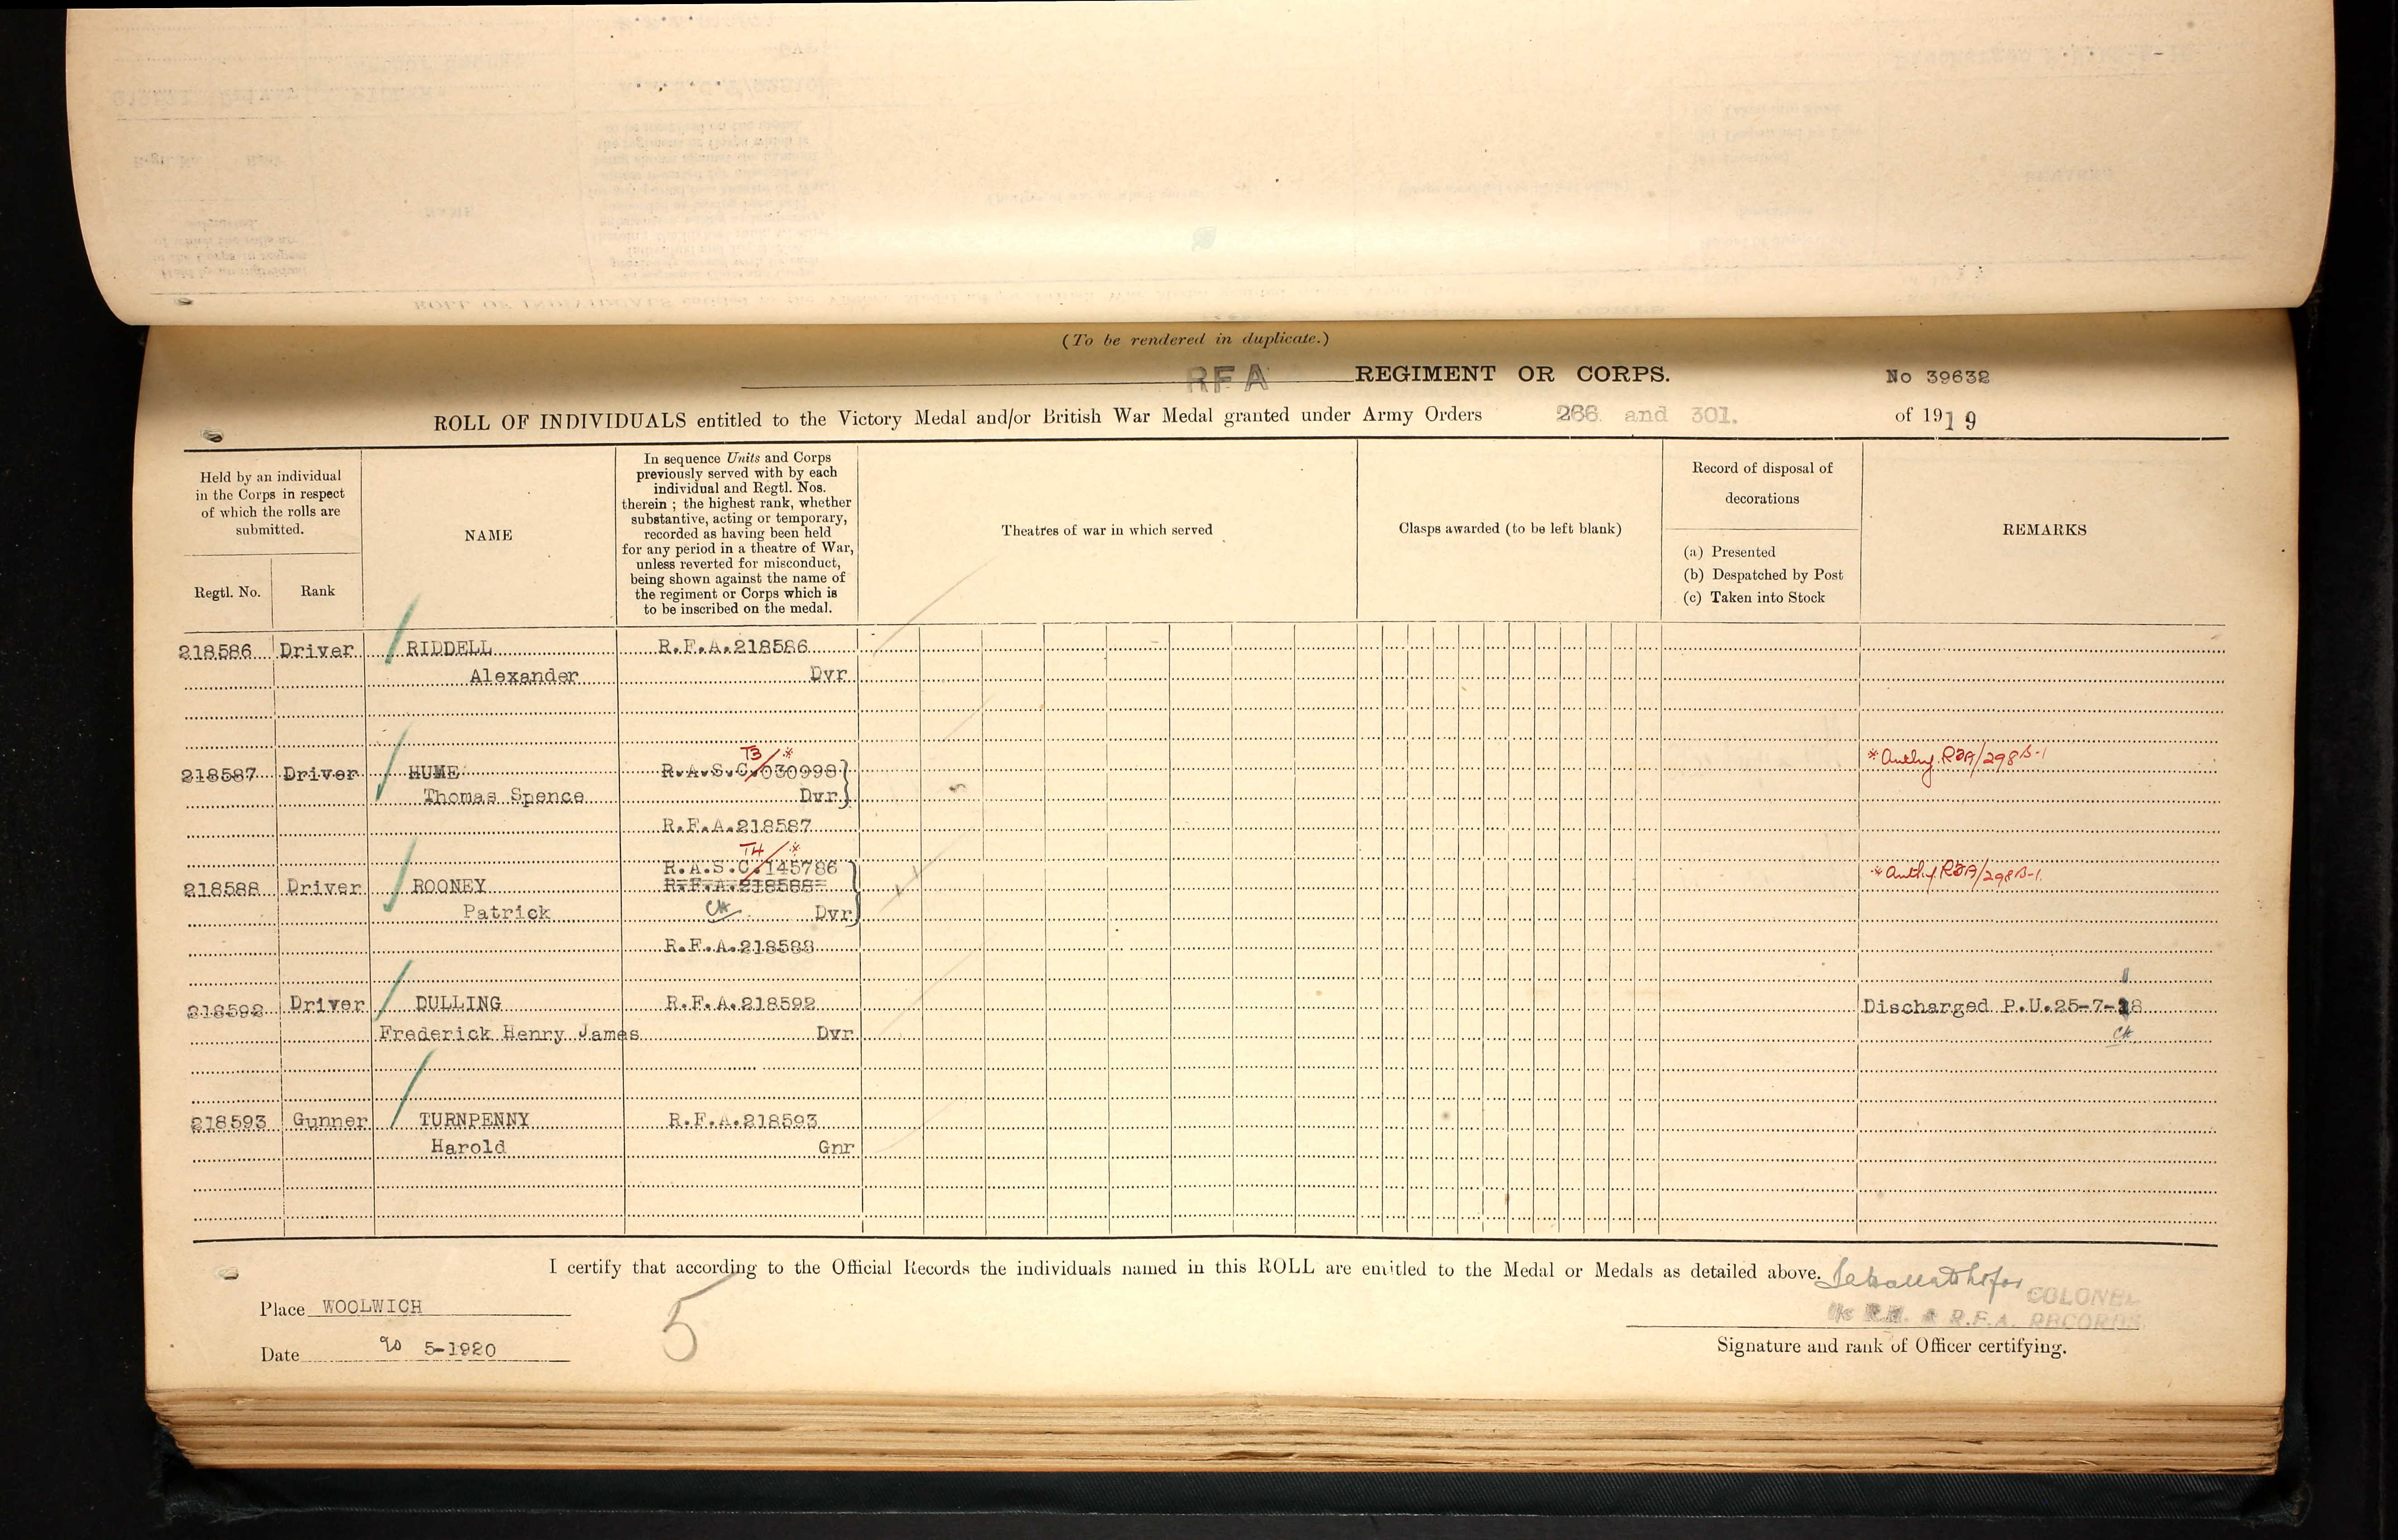 (To be rendered in duplicate.)
RFA REGIMENT OR CORPS. No 39632
ROLL OF INDIVIDUALS entitled to the Victory Medal and/or British War Medal granted under Army Orders 266 and 301. of 1919
Held by an individual in the Corps in respect of which the rolls are submitted.
Regtl. No.
Rank
NAME
In sequence Units and Corps
previously served with by each
individual and Regtl. Nos.
therein ; the highest rank, whether
substantive, acting or temporary,
recorded as having been held
for any period in a theatre of War,
unless reverted for misconduct,
being shown against the name of
the regiment or Corps which is
to be inscribed on the medal.
Theatres of war in which served
Clasps awarded (to be left blank)
Record of disposal of
decorations
(a) Presented
(b) Despatched by Post
(c) Taken into Stock
REMARKS
218586 Driver RIDDELL R.F.A.218586
Alexander Dvr
T3/*
218587 Driver HUME R.A.S.C.030998 *Authy. /298
Thomas Spence Dvr
R.F.A.218587
T4/*
R.A.S.C.145786
218588 Driver ROONEY R.F.A.218588 *Authy. /298
Patrick Dvr
R.F.A.218588
218592 Driver DULLING R.F.A.218592 Discharged P.U.25-7-18
Frederick Henry James Dvr
218593 Gunner TURNPENNY R.F.A.218593
Harold Gnr
I certify that according to the Official Records the individuals named in this ROLL are entitled to the Medal or Medals as detailed above.
for COLONEL
R.H. & R.F.A. RECORDS.
Place WOOLWICH
Date 20 5-1920
5
Signature and rank of Officer certifying.